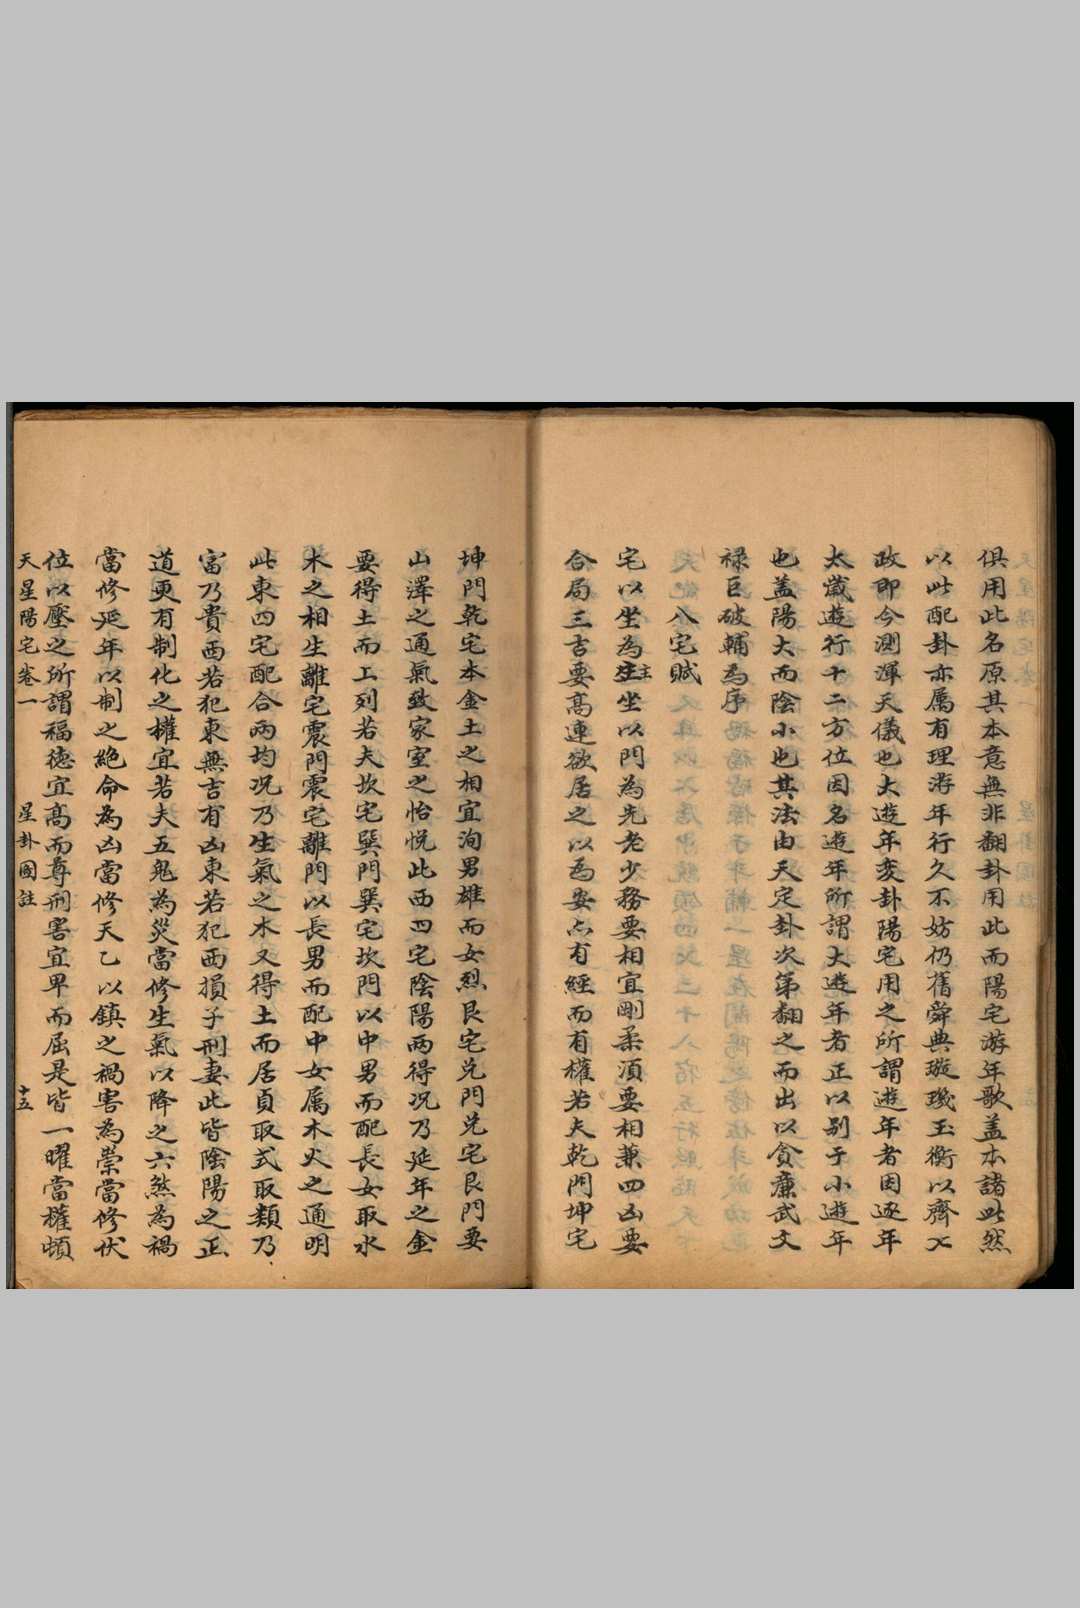 俱用此名原其本意無非翻卦用此而陽宅游年歌蓋本諸此然
以此配卦亦属有理游年行久不妨仍舊舜典璇璣玉衡以齊七
政即今測渾天儀也大遊年变卦陽宅用之所謂遊年者因逐年
太歲遊行十二方位因名遊年所謂大遊年者正以别于小遊年
也盖陽大而陰小也其法由天定卦次第翻之而出以貪廉武文
禄巨破輔為序
八宅賦
宅以坐為主坐以門為先老少務要相宜剛柔須要相兼四凶要
合局三吉要高連欲居之以為安亦有經而有權若夫乾門坤宅
坤門乾宅本金土之相宜洵男雄而女烈艮宅兑門兑宅艮門要
山澤之通氣致家室之怡悦此西四宅陰陽兩得况乃延年之金
要得土而上列若夫坎宅巽門巽宅坎門以中男而配長女取水
木之相生離宅震門震宅離門以長男而配中女属木火之通明
此東四宅配合兩均况乃生氣之木又得土而居貞取式取類乃
富乃貴西若犯東無吉有凶東若犯西損子刑妻此皆陰陽之正
道更有制化之權宜若夫五鬼為災當修生氣以降之六煞為禍
當修延年以制之絶命為凶當修天乙以鎮之禍害為祟當修伏
位以壓之所謂福德宜高而尊刑害宜卑而屈是皆一曜當權頓
天星陽宅卷一 星卦圖註 十五